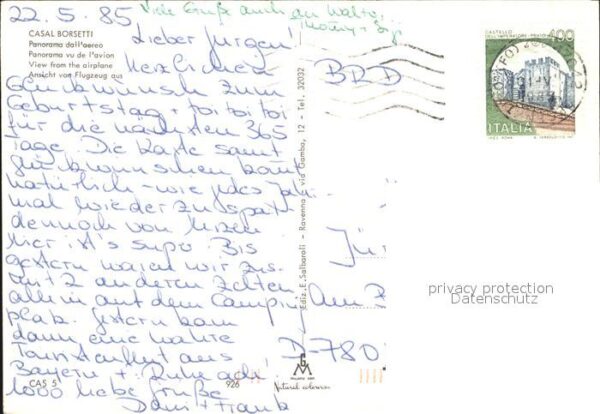 22.5.85
Viele Grüße auch an Walter,
CASAL BORSETTI
Panorama dall'aereo
Panorama vu de l'avion
View from the airplane
Ansicht von Flugzeug aus
Lieber Jürgen!
Herzlichen
Glückwunsch zum
Geburtstag + toi toi toi
für die nächsten 365
Tage. Die Karte samt
Glückwünschen kommt
natürlich - wie jedes
mal wieder zu spät
dennoch von Herzen
hier ist's super. Bis
gestern waren wir zus.
mit 2 anderen Zelten
allein auf dem Camping
platz. Gestern kam
dann eine wahre
aus
Bayern + Ruhe ade!
1000 liebe Grüße
Dani + Frank
CAS 5
926
Ediz. E. Salbaroli - Ravenna - via Gamba, 12 - Tel. 32032
BRD
Jür
Am
D-780
CASTELLO
DELL'IMPERATORE - PRATO
400
ITALIA
privacy protection
Datenschutz